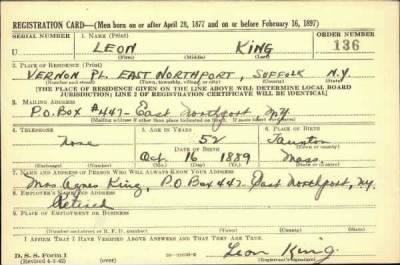 REGISTRATION CARD—(Men born on or after April 28, 1877 and on or before February 16, 1897)
SERIAL NUMBER 1. NAME (Print) ORDER NUMBER
LEON KING 136
(First) (Middle) (Last)
2. PLACE OF RESIDENCE (Print)
VERNON PL. EAST NORTHPORT, SUFFOLK N.Y.
(Number and street) (Town, township, village, or city) (County) (State)
[THE PLACE OF RESIDENCE GIVEN ON THE LINE ABOVE WILL DETERMINE LOCAL BOARD
JURISDICTION; LINE 2 OF REGISTRATION CERTIFICATE WILL BE IDENTICAL]
3. MAILING ADDRESS
P.O. Box #447- East Northport N.Y.
[Mailing address if other than place indicated on line 2. If same insert word same]
4. TELEPHONE 5. AGE IN YEARS 6. PLACE OF BIRTH
None 52 Taunton
DATE OF BIRTH (Town or county)
Oct 16 1889 Mass.
(Exchange) (Number) (Mo.) (Day) (Yr.) (State or country)
7. NAME AND ADDRESS OF PERSON WHO WILL ALWAYS KNOW YOUR ADDRESS
Mrs Agnes King, P.O Box 447- East Northport, N.Y.
8. EMPLOYER'S NAME AND ADDRESS
Retired
9. PLACE OF EMPLOYMENT OR BUSINESS
(Number and street or R. F. D. number) (Town) (County) (State)
I AFFIRM THAT I HAVE VERIFIED ABOVE ANSWERS AND THAT THEY ARE TRUE.
D. S. S. Form 1 Leon King
(Revised 4-1-42) (over) (Registrant's signature)